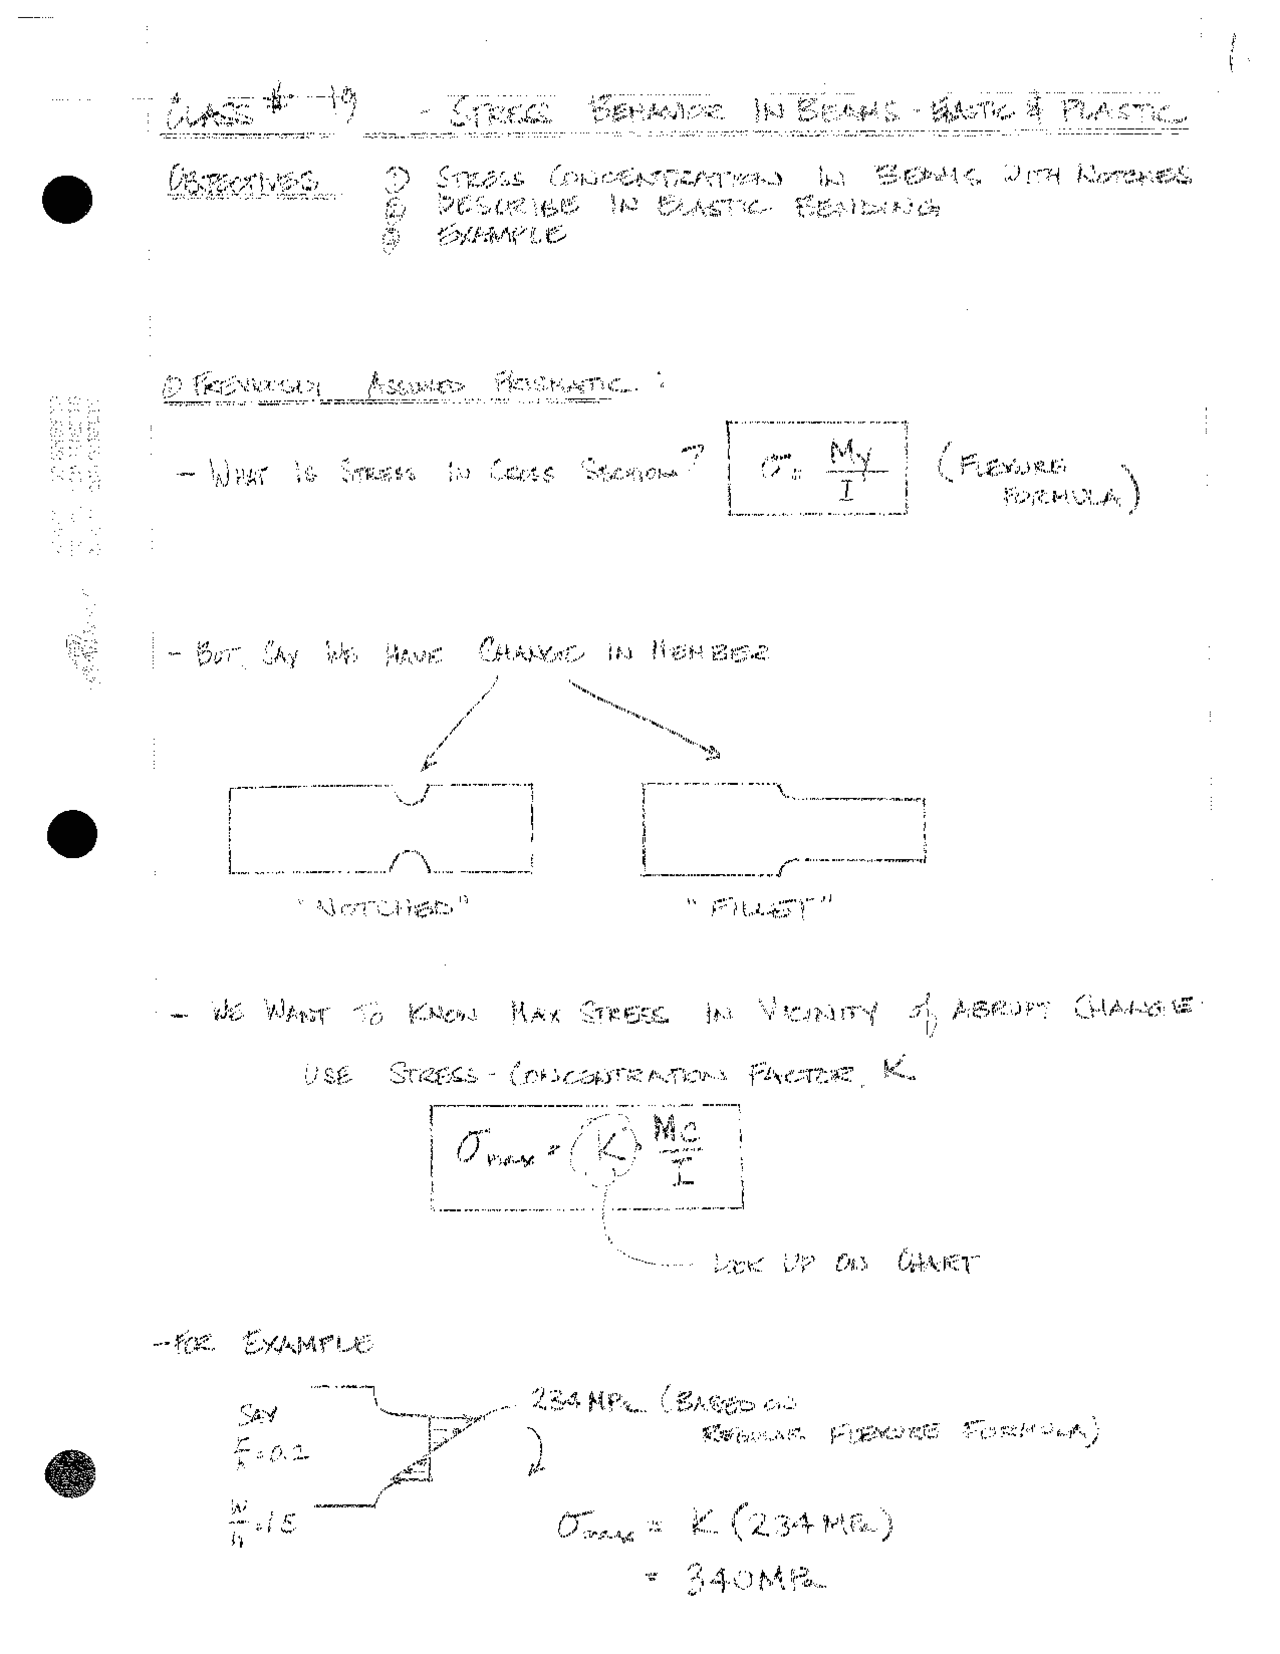 1.
CLASS # 19 - STRESS BEHAVIOR IN BEAMS - ELASTIC & PLASTIC
OBJECTIVES ① STRESS CONCENTRATION IN BEAMS WITH NOTCHES
② DESCRIBE IN ELASTIC BENDING
③ EXAMPLE
① PREVIOUSLY ASSUMED PRISMATIC :
- WHAT IS STRESS IN CROSS SECTION? σ = My/I (FLEXURE FORMULA)
- BUT SAY WE HAVE CHANGE IN MEMBER
"NOTCHED" "FILLET"
- WE WANT TO KNOW MAX STRESS IN VICINITY of ABRUPT CHANGE
USE STRESS-CONCENTRATION FACTOR, K
σmax = K · Mc/I
LOOK UP ON CHART
- FOR EXAMPLE
SAY
r/h = 0.2
w/h = 1.5
234 MPa (BASED ON
REGULAR FLEXURE FORMULA)
σmax = K (234 MPa)
= 340 MPa